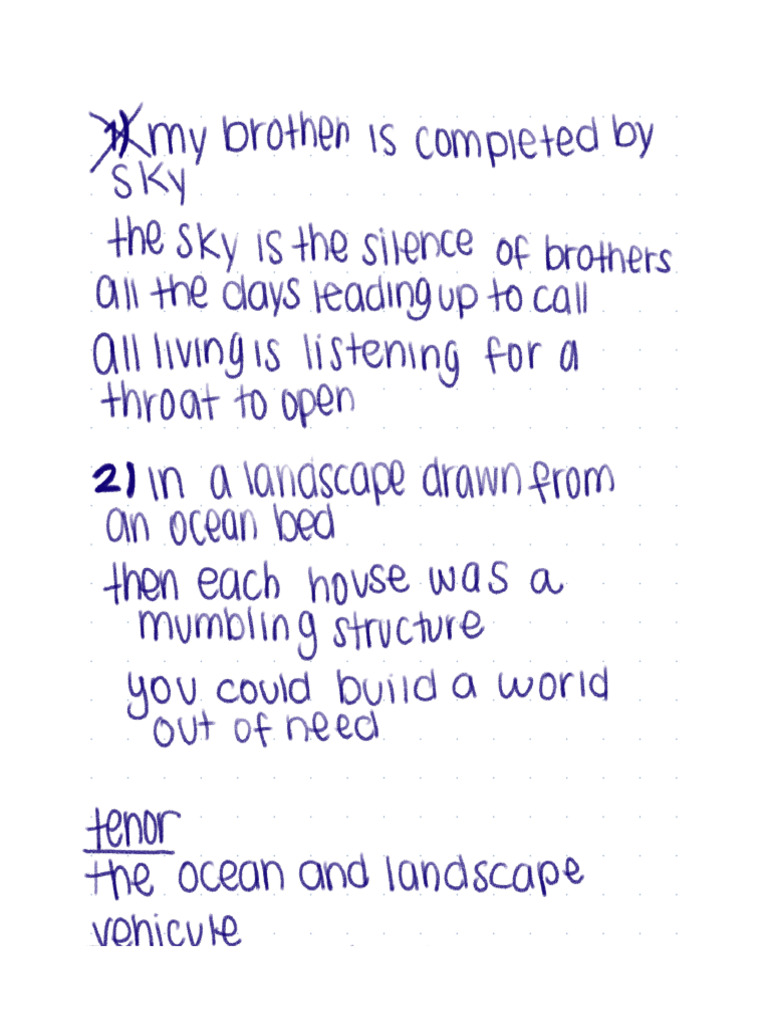 1) my brother is completed by
sky
the sky is the silence of brothers
all the days leading up to call
all living is listening for a
throat to open
2) in a landscape drawn from
an ocean bed
then each house was a
mumbling structure
you could build a world
out of need
tenor
the ocean and landscape
vehicule